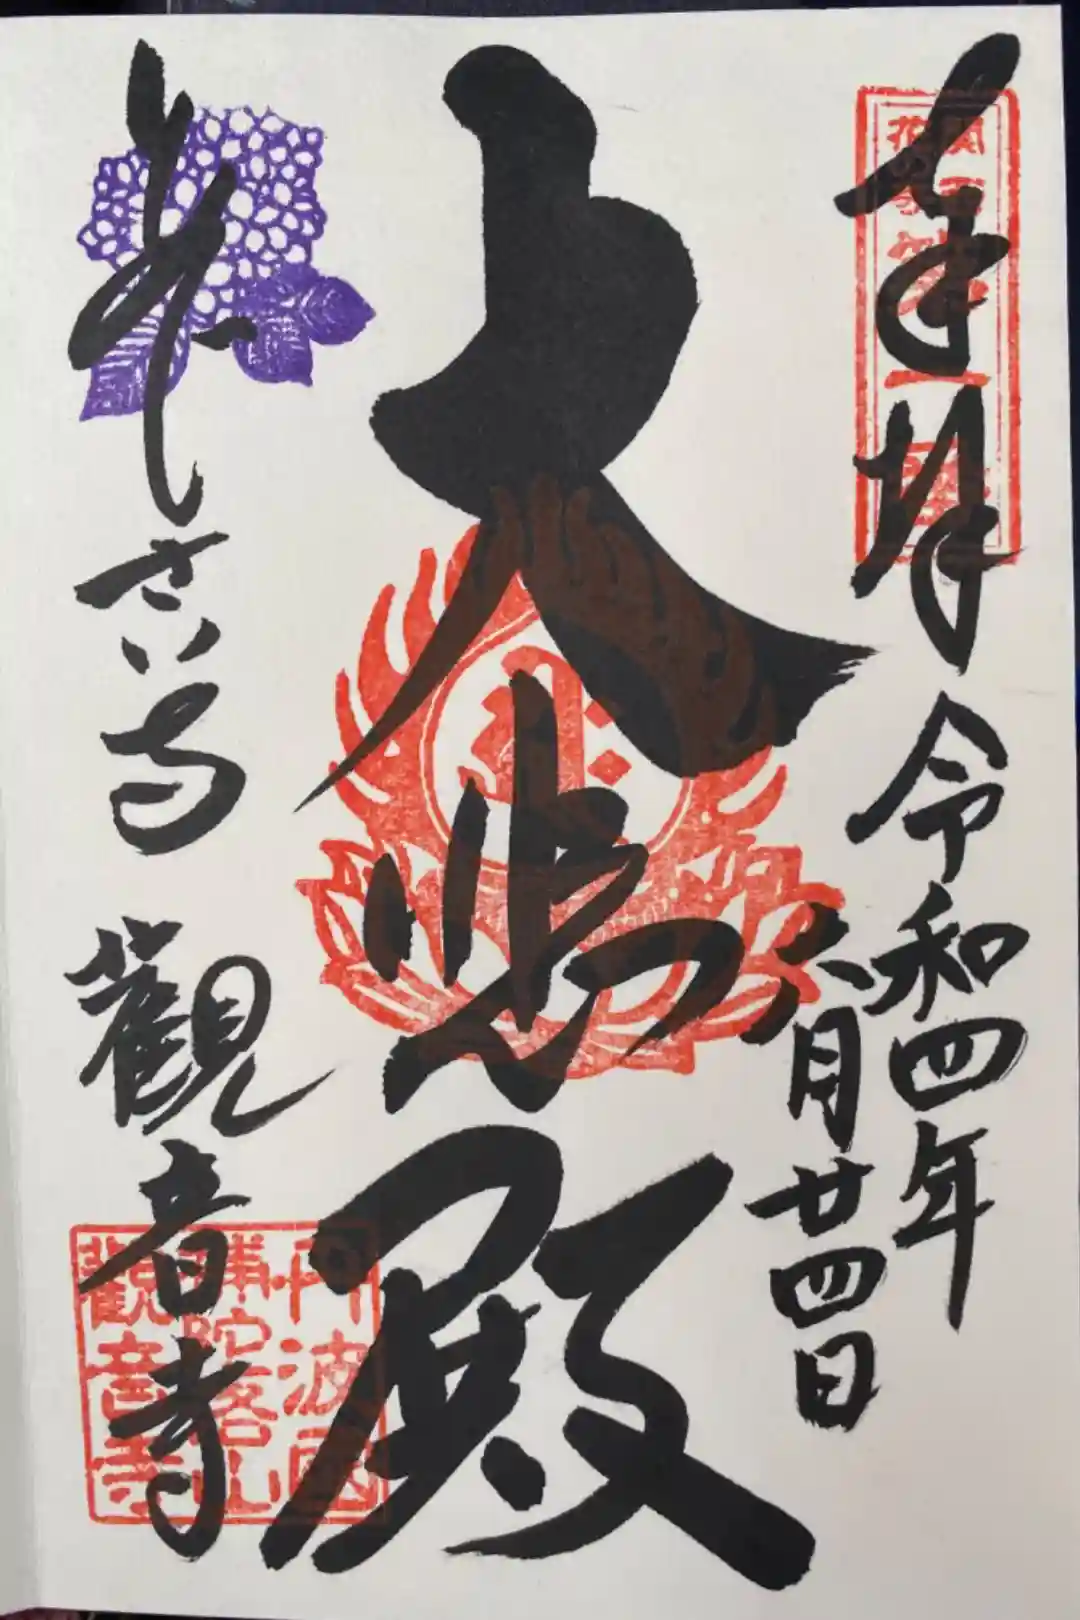 奉拝
令和四年
六月廿四日
大悲殿
あじさい寺 觀音寺
丹波國
補陀落山
觀音寺